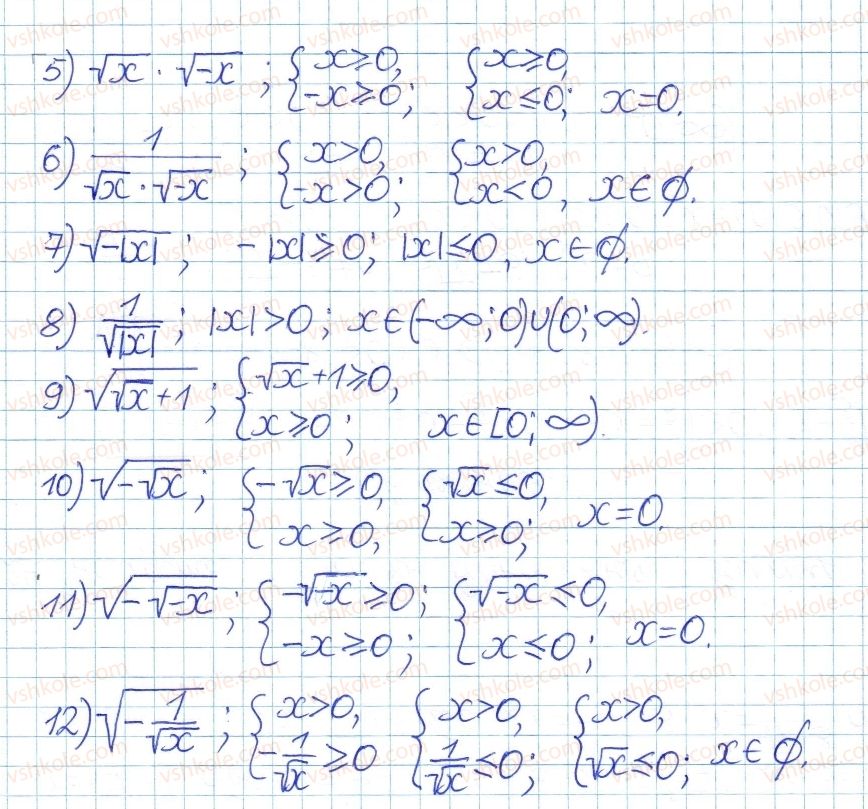 5) √x · √-x ; { x≥0, -x≥0; { x≥0, x≤0; x=0.
6) 1/(√x · √-x) ; { x>0, -x>0; { x>0, x<0, x∈∅.
7) √-|x| ; -|x|≥0; |x|≤0, x∈∅.
8) 1/√|x| ; |x|>0; x∈(-∞;0)∪(0;∞).
9) √(√x+1) ; { √x+1≥0, x≥0; x∈[0;∞).
10) √(-√x) ; { -√x≥0, x≥0, { √x≤0, x≥0; x=0.
11) √(-√-x) ; { -√-x≥0; -x≥0; { √-x≤0, x≤0; x=0.
12) √(-1/√x) ; { x>0, -1/√x≥0 { x>0, 1/√x≤0; { x>0, √x≤0; x∈∅.
vshkole.com